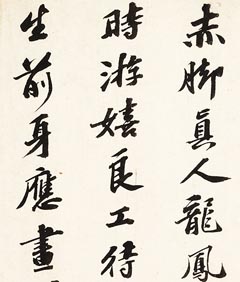 赤脚真人龍鳳
時游嬉良工得
生前身應畫